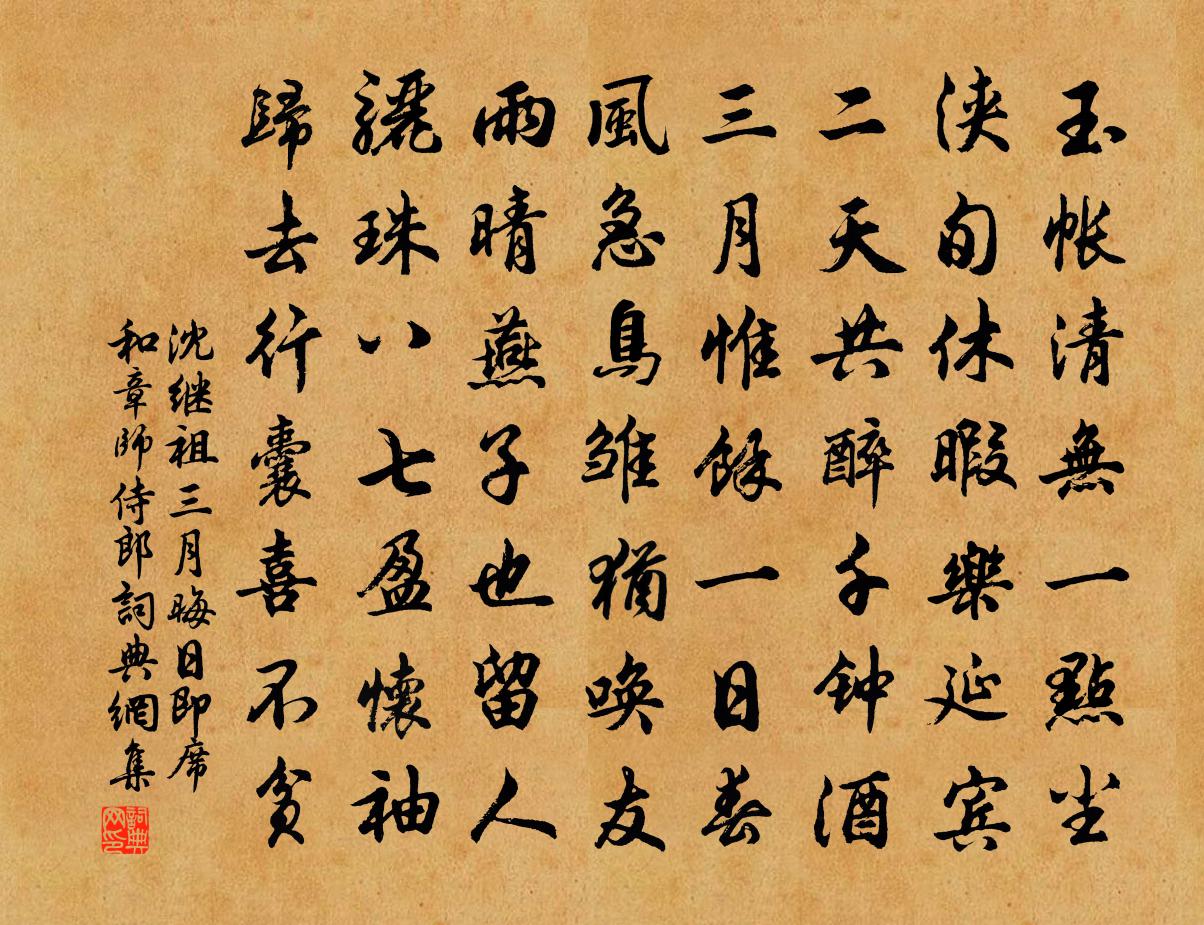 玉帐清無一點尘
浃旬休暇樂延宾
二天共醉千钟酒
三月惟餘一日春
風急鳥雏猶唤友
雨晴燕子也留人
驪珠八七盈懷袖
歸去行囊喜不贫
沈继祖三月晦日即席
和章师侍郎詞典網集
詞典
网印